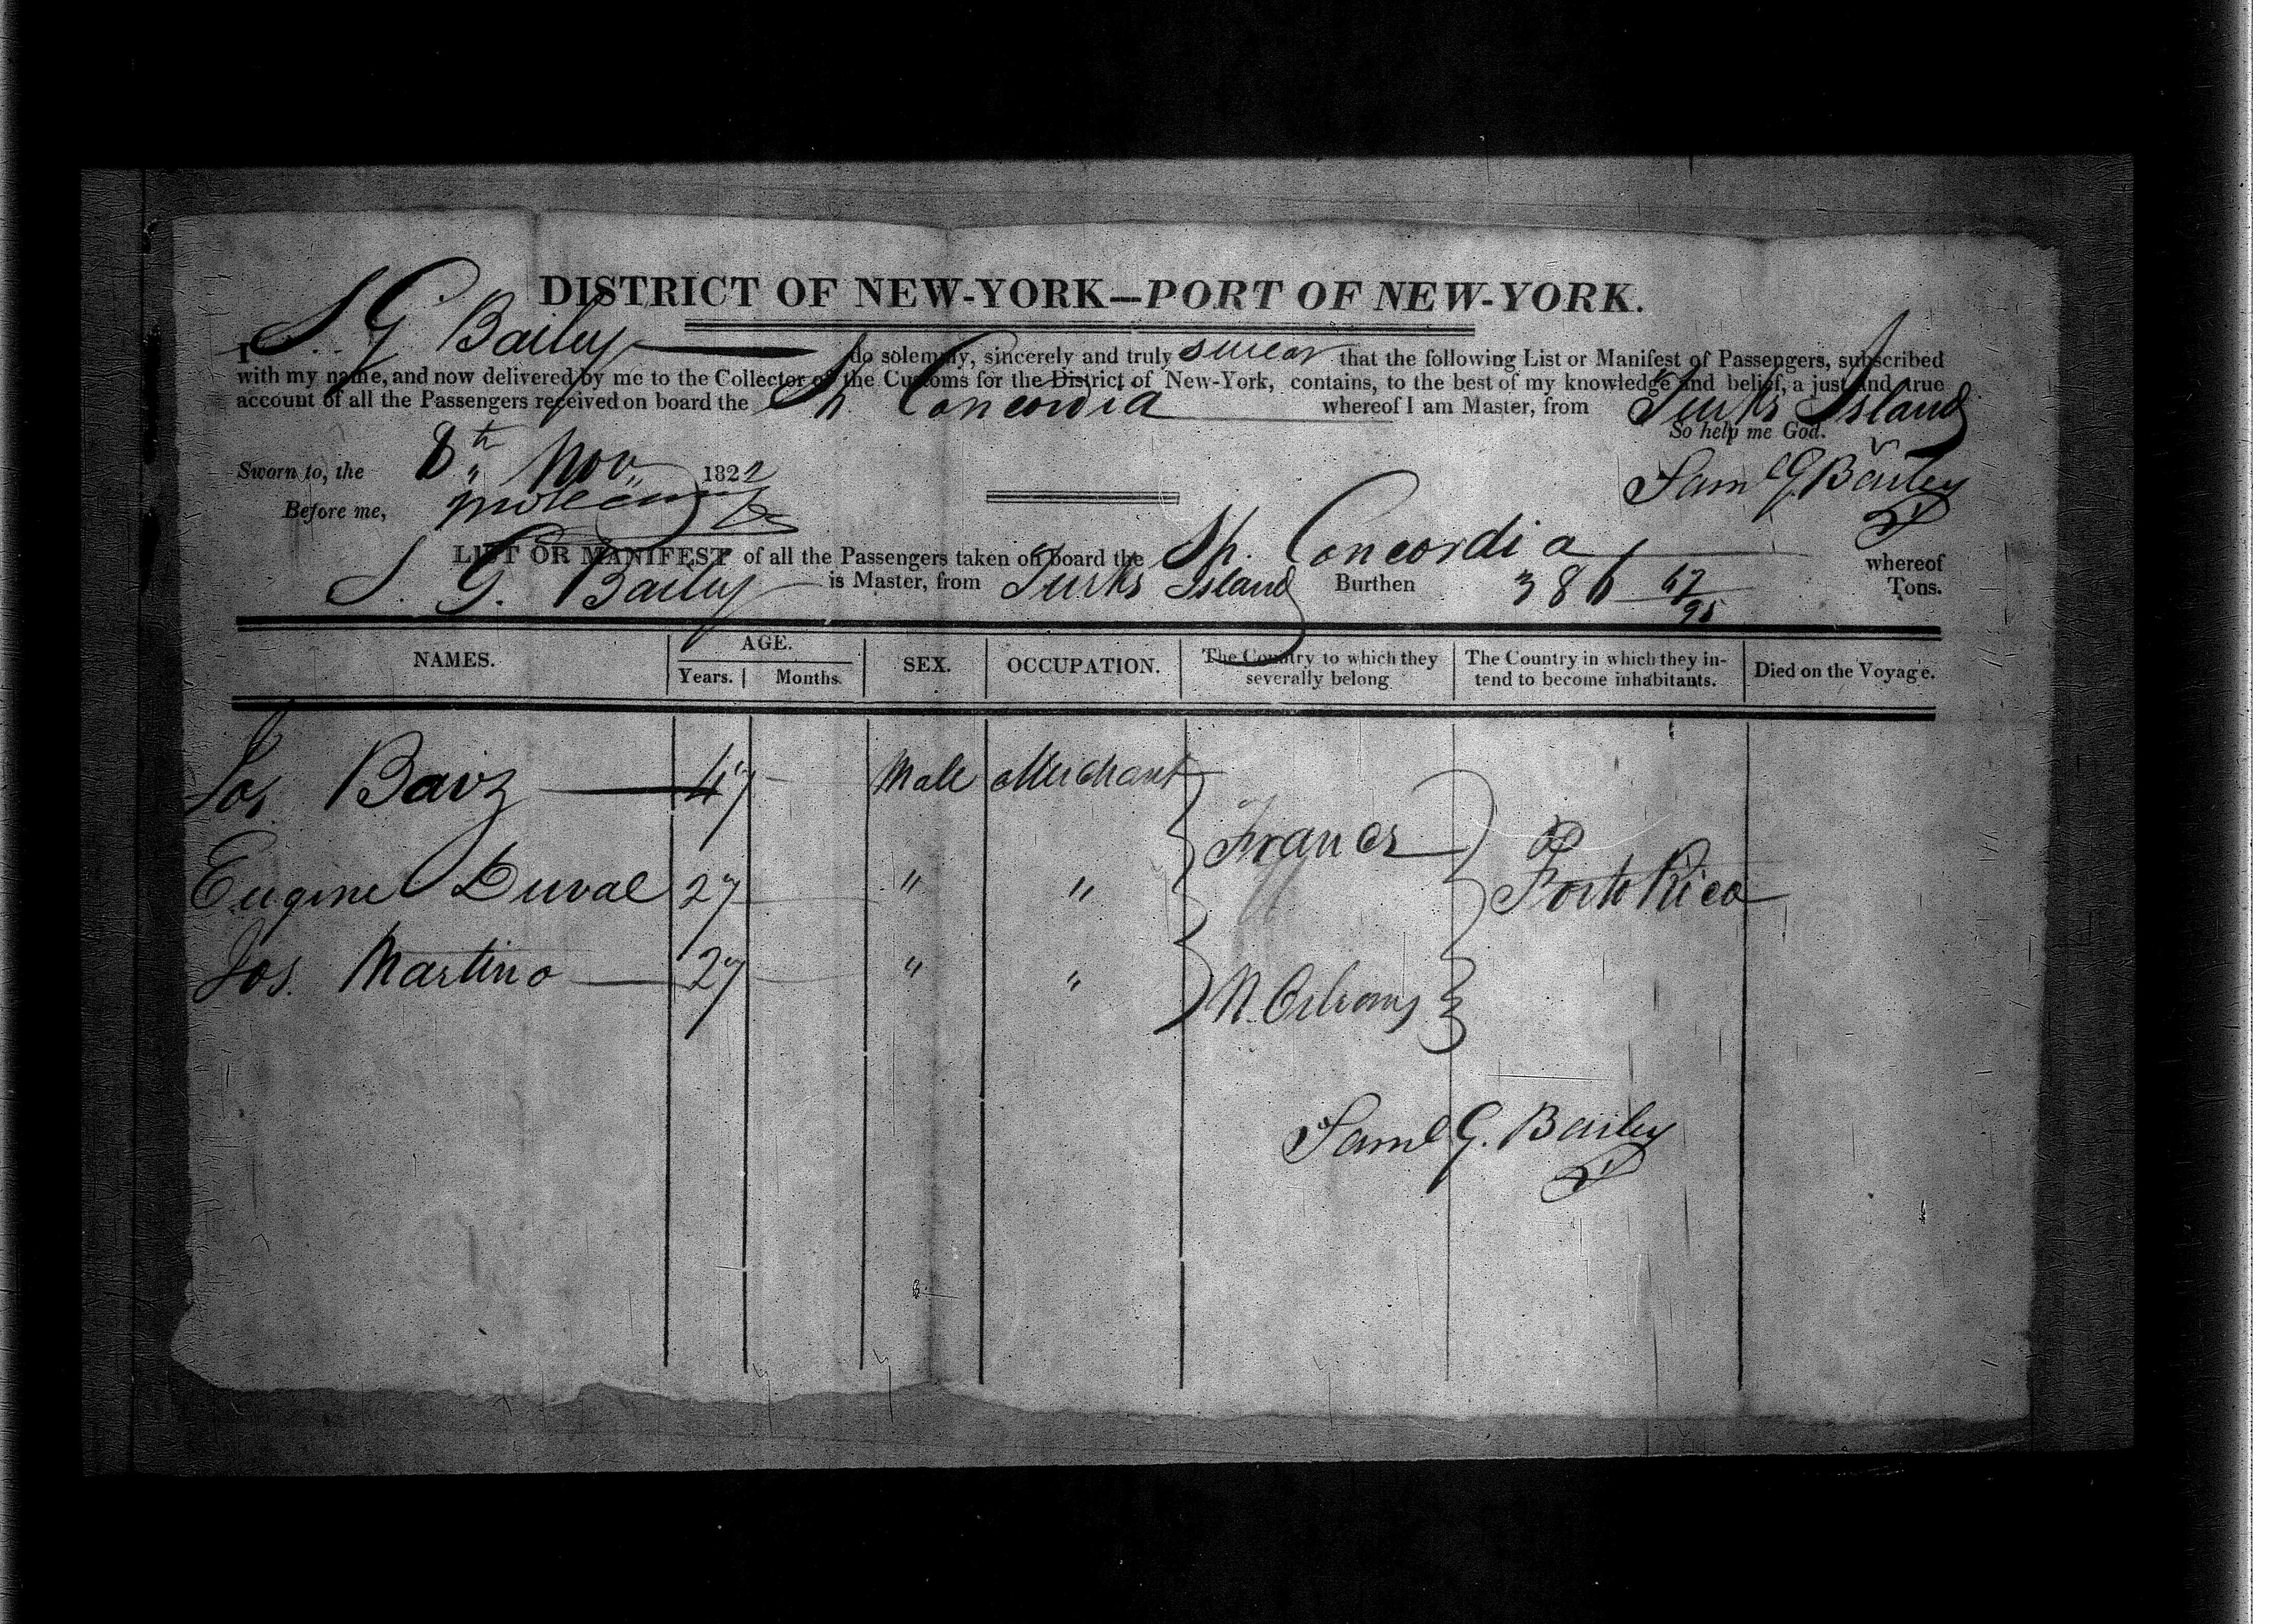 DISTRICT OF NEW-YORK—PORT OF NEW-YORK.
I S G Baily do solemnly, sincerely and truly swear that the following List or Manifest of Passengers, subscribed
with my name, and now delivered by me to the Collector of the Customs for the District of New-York, contains, to the best of my knowledge and belief, a just and true
account of all the Passengers received on board the Sh. Concordia whereof I am Master, from Turks Island
So help me God.
Sworn to, the 8th Nov 1822
Saml G Bailey
Before me,
LIST OR MANIFEST of all the Passengers taken on board the Sh. Concordia whereof
S. G. Baily is Master, from Turks Island Burthen 386 67/95 Tons.
NAMES. AGE. Years. Months. SEX. OCCUPATION. The Country to which they severally belong The Country in which they intend to become inhabitants. Died on the Voyage.
Jos. Baiz 47 Male Merchant
France
Eugine Duval 27 " " Porto Rico
Jos. Martino 27 " "
N. Orleans
Saml G. Bailey